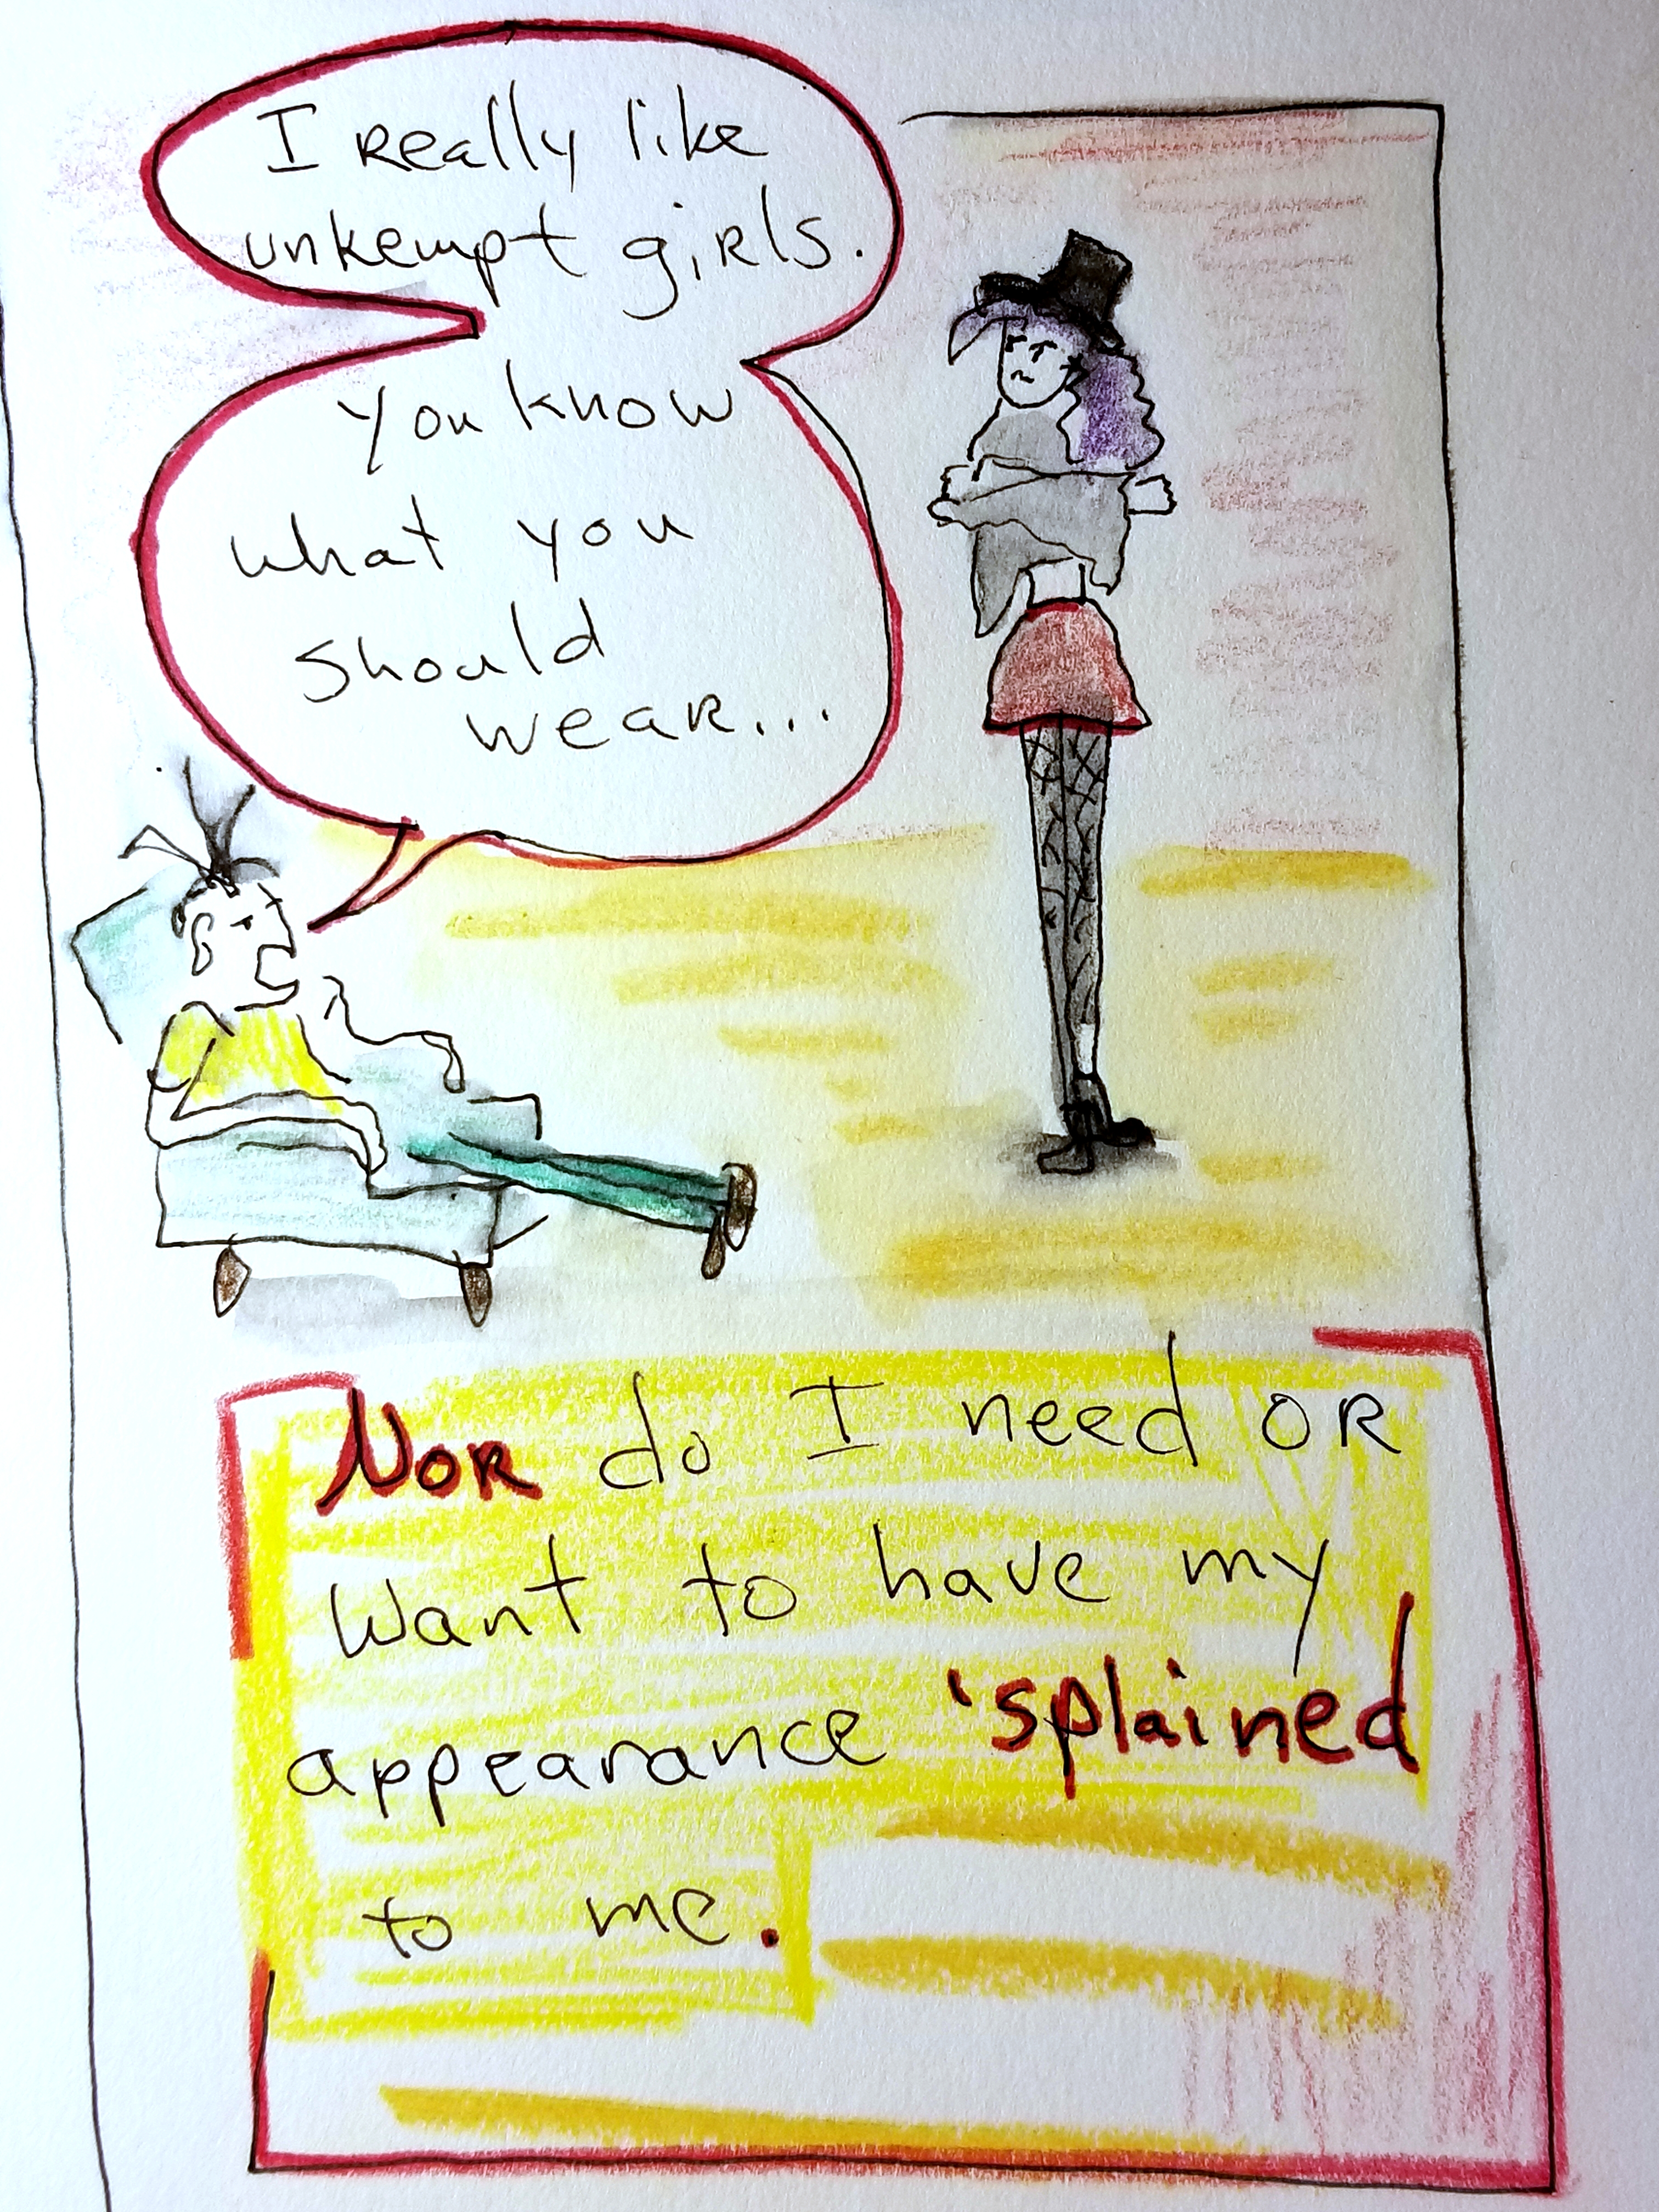 I really like
unkempt girls.
You know
what you
should
wear...
Nor do I need or
want to have my
appearance 'splained
to me.